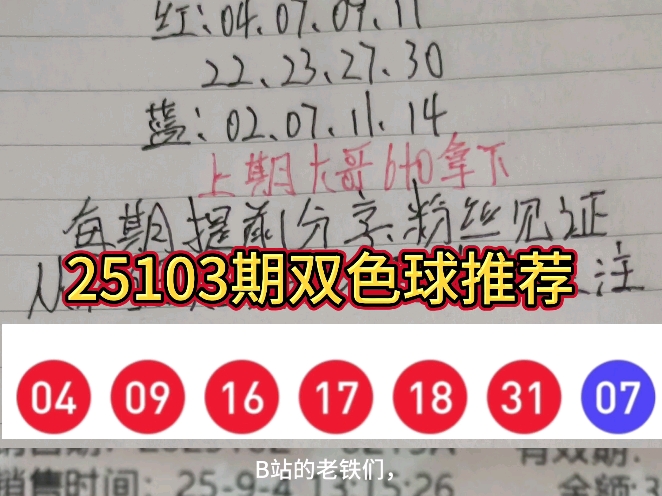 红:04.07.09.11
22、23、27、30
蓝:02.07.11.14
上期大哥6+0拿下
每期提前分享.粉丝见证
注
25103期双色球推荐
04 09 16 17 18 31 07
有效期:
B站的老铁们,
销售时间: 25-9-4 13
5:26
金额:3